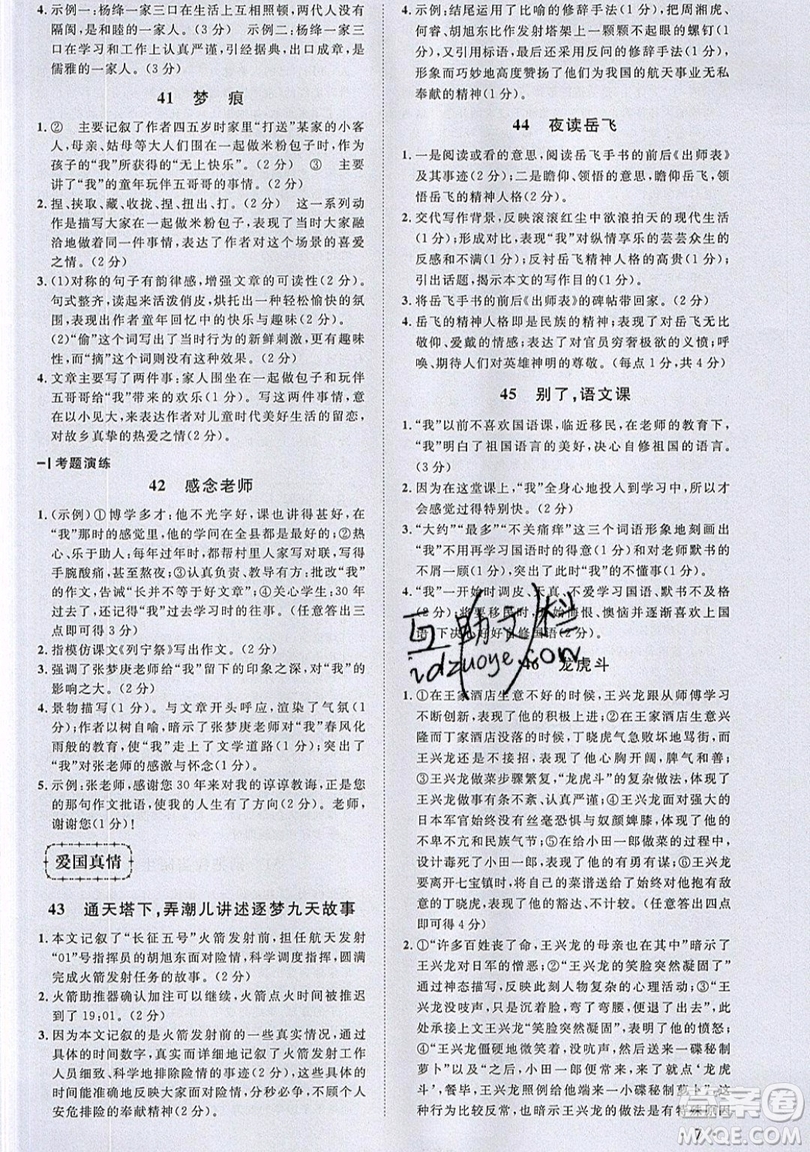 4. 示例一：杨绛一家三口在生活上互相照顾，两代人没有
隔阂，是和睦的一家人。（3 分）　示例二：杨绛一家三
口在学习和工作上认真严谨，出口成章，是
儒雅的一家人。（3 分）
41　梦　痕
1. ②　主要记叙了作者四五岁时家里“打送”某家的小客
人，母亲、姑母等大人们围坐在一起做米粉包子，作为
孩子的“我”所获得的“无上快乐”。（2 分）　③　主要
讲了“我”的童年玩伴五哥哥的事情。（2 分）
2. 捏、挟取、藏、收拢、捏、扭出、打。（2 分）　这一系列动
作的描写是大家在一起做米粉包子，表现了大家融
洽地做着同一件事情，表达了作者对这个场景的喜爱
之情。（2 分）
3. (1)对称的句子有韵律感，增强文章的可读性。（2 分）
句式整齐，读起来活泼俏皮，烘托出一种轻松愉快的氛
围，表现出作者童年回忆中的快乐与趣味（2 分）
(2)“偷”这个词写出了当时行为的新鲜刺激，更有趣
味，而“摘”这个词则没有这种效果。（2 分）
4. 文章主要写了两件事：家人围坐在一起做包子和玩伴
五哥哥给“我”带来的欢乐（2 分）。这些都是生活琐事，
作者以小见大，表达了作者对儿童时代美好生活的留恋，
对故乡真挚的热爱之情（2 分）。
考题演练
42　感念老师
1. （示例）①博学多才：他不光字好，课也讲得好，在
“我”那时的感觉里，他的学问在全县都是有名的②热
心、乐于助人：每年过年时，都帮村里人家写对联，写得
手腕酸痛，当成乐事③认真负责、教导有方：批改“我”
的作文，告诫“长并不等于好文章”；④关心学生：30 年
后还来信，和“我”谈过去学习时的往事。（任意答出三
点即可，3 分）
2. 指模仿课文《列宁祭》写作文。（2 分）
3. 强调了张梦庚老师给“我”留下的印象之深，对“我”的
影响之大。（2 分）
4. 景物描写（1 分）。与文章开头呼应，渲染了气氛（1
分）。作者以树自喻，暗写了张梦庚老师对“我”春风化
雨般的教育，使“我”走上了文学道路（1 分）；突出了
“我”对张老师的感激之情（1 分）。
5. 示例：张老师，感谢您 30 年来对我的谆谆教诲，正是您
的那句作文批语，使我的人生有了方向（2 分）。老师，
谢谢您（1 分）！
爱国真情
43　通天塔下，弄潮儿讲述逐梦九天故事
1. 本文记叙了“长征五号”火箭发射前，担任航天发射
“01”号指挥员的胡旭东面对险情，科学排除险情，圆满
完成火箭发射任务的故事。（3 分）
2. 火箭助推器工作可以继续，火箭点火时间又一次被推
迟到了 19:01。（2 分）
3. 因为本文记叙的是火箭发射前的一些真实情况，通过
具体的时间数字，真实而详细地记叙了火箭发射工作
人员细致、科学地排除险情的情景（2 分），使文章更真
实、更具体（1 分），突出了航天人在危急关头不顾个人
安危排险的奉献精神（2 分）
4. 示例：结尾运用了比喻的修辞手法（1 分），把周湘虎、
何睿、胡旭东比作发射塔架上一颗颗的螺钉（1
分），又引用标语，最后采用反问的修辞手法（1 分），
形象而巧妙地高度赞扬了他们为我国的航天事业无私
奉献的精神（1 分）。
44　夜读岳飞
1. 一是阅读或看的意思，阅读岳飞手书的前后《出师表》
及其事迹（2 分）；二是瞻仰、领悟的意思，瞻仰岳飞、领
悟岳飞的精神人格（2 分）。
2. 交代写作背景，反映滚滚红尘中欲浪拍天的现代生活
（1 分）；突出表现了“我”对纵情享乐的芸芸众生的
悲悯和不满情绪（1 分）；反衬岳飞精神人格的高贵（1 分）；
引出话题，揭示本文的写作目的（1 分）。
3. 将岳飞手书的前后《出师表》的碑帖带回家。（2 分）
4. 岳飞的精神人格即是民族的精神；对忠魂岳飞的敬仰、
感佩之情；表达对官员穷奢极欲的义愤之情；呼
唤、期待人们对英雄神明的尊敬。（每点 1 分，共 4 分）
45　别了，语文课
1. “我”以前不喜欢国语课，临近移民，在老师的教育下，
“我”明白了祖国语言的美好，决心自修祖国的语言。
（3 分）
2. 因为在这堂课上，“我”全身心地投入到学习中，所以才
会感觉过得特别快。（2 分）
3. “大约”“最多”“不关痛痒”这三个词语形象地刻画出
“我”不用再学习国语时的得意（1 分）和对老师默书的
不屑一顾（1 分），突出了“我”的不懂事（1 分）。
4. “我”一开始时调皮、天真、不喜欢学习国语、默书不及
格（1 分），要移民时……悔恨、懊恼、渐渐喜欢上国
语，下决心好好自修国语（2 分）。
46　龙虎斗
1. ①在王家酒店生意不好的时候，王兴龙跟从师傅学习
不同菜系，表现了他的积极上进；②在王家酒店生意兴
隆，丁家酒店没落的时候，丁晓虎气急败坏地骂街，而
王兴龙却没有回击，表现了他胸襟开阔，脾气和善；③
王兴龙做菜步骤繁复，“龙虎斗”的复杂做法，体现了王
兴龙做事有条不紊、认真严谨；④王兴龙面对强大的
日本军官时没有丝毫恐惧与奴颜婢膝，表现了他不
卑不亢和民族气节；⑤在给小田一郎的多次做菜之后，
设计毒死小田一郎，表现了他的有勇有谋；⑥王兴龙要
离开七宝镇时，将自己的菜谱送给丁晓虎，表现了他的
不计前嫌和大度。（任意答出三点即可，3 分）
2. ①“许多百姓丧了命，王兴龙的母亲也在其中”暗示了
王兴龙对日军的憎恶；②“王兴龙的笑脸突然凝固了”
通过神态描写，表现出此刻人物复杂的心理活动；③
“王兴龙没吱声，只是沉着脸，弯了弯腰，便退出去”与
上文王兴龙“笑脸突然凝固”，暗示了王兴龙的愤怒；
④“王兴龙僵硬地微笑着，没忘送来一碟秘制
萝卜”，与后文内容照应；⑤王兴龙同意了做“龙虎
斗”，餐毕，王兴龙照例给他们送来一小碟秘制萝卜”，
前后对比反常，也暗示了王兴龙的做法是有特殊原因
7
互助文栏
idzuoye.com
答案圈
MXQE.COM